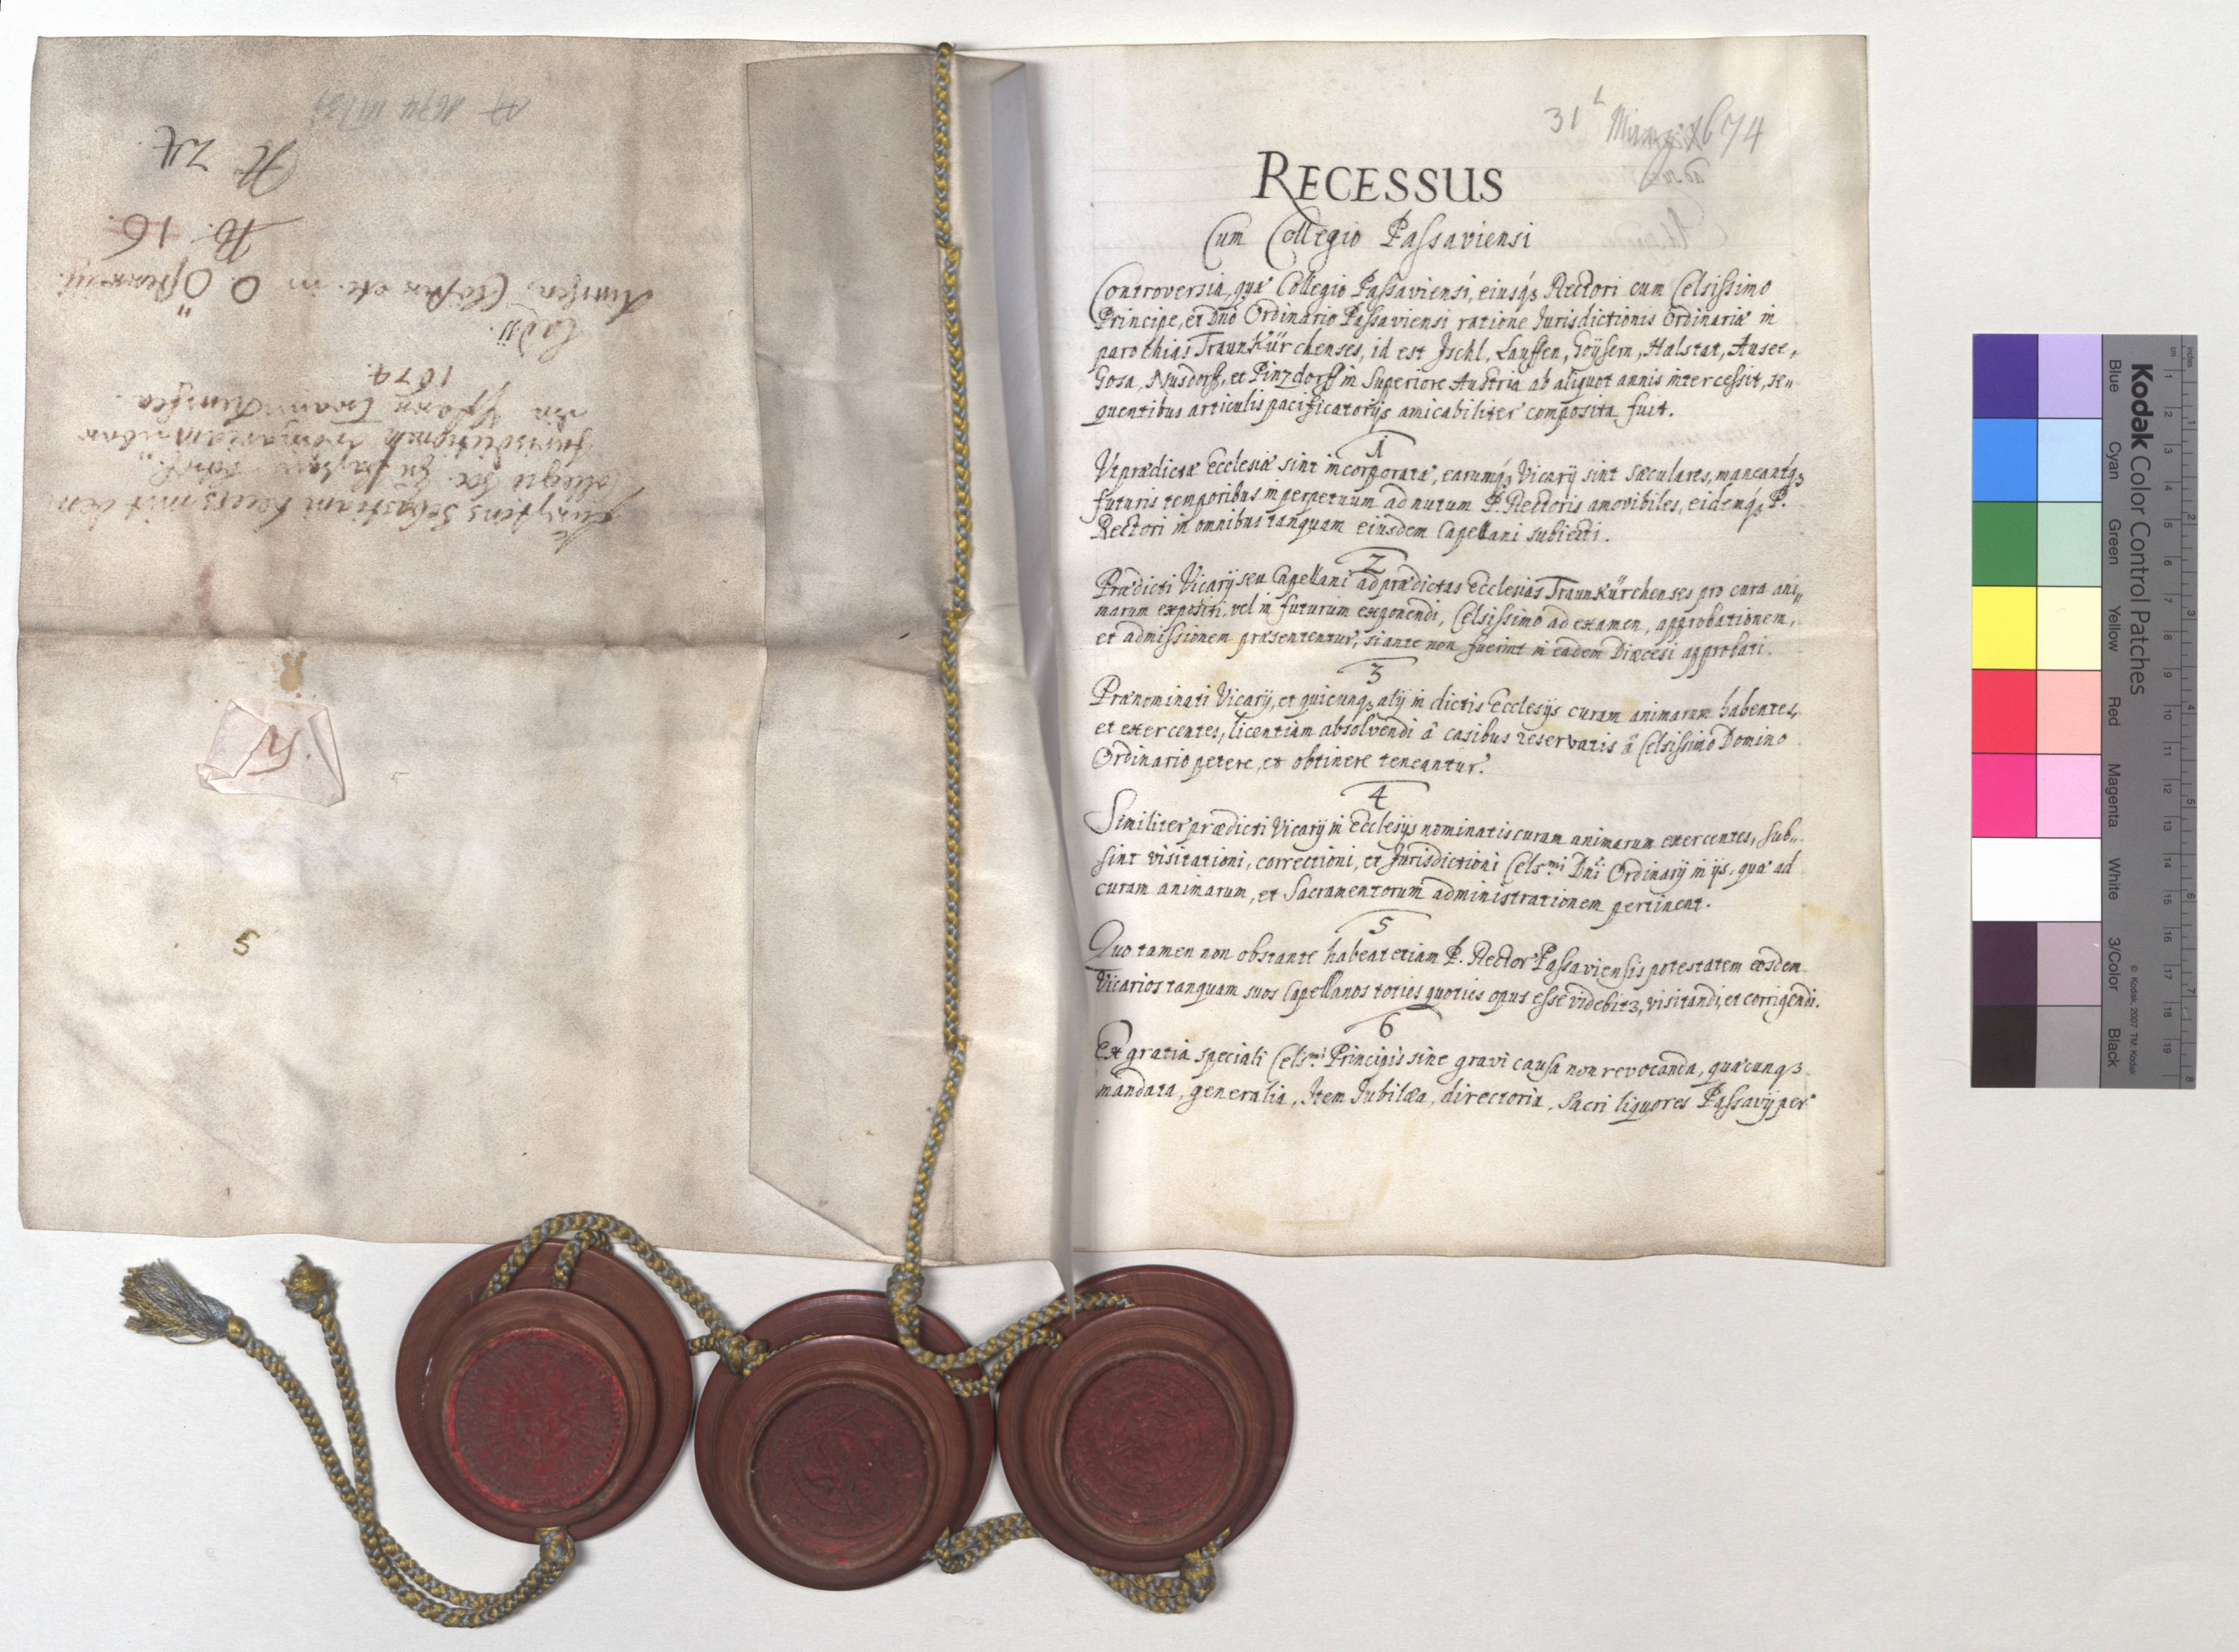 31 Martij 1674
RECESSUS
Cum Collegio Passaviensi
Controversia, quæ Collegio Passaviensi, eiusq́3 Rectori cum Celsissimo
Principe, et Dnō Ordinario Passaviensi ratione Jurisdictionis Ordinariæ in
parochias Traunkürchenses, id est Ischl, Lauffen, Goÿsern, Halstat, Ausee,
Gosa, Nusdorff, et Pinzdorff in Superiore Austria ab aliquot annis intercessit, se„
quentibus articulis pacificatorijs amicabiliter composita fuit.
1
Ut prædictæ Ecclesiæ sint incorporatæ, earumq́3 Vicarij sint sæculares, maneantq́3
futuris temporibus in perpetuum ad nutum P. Rectoris amovibiles, eidemq́3 P.
Rectori in omnibus tanquam eiusdem Capellani subiecti.
2
Prædicti Vicarij seu Capellani ad prædictas Ecclesias Traunkürchenses pro cura ani„
marum expositi, vel in futurum exponendi, Celsissimo ad examen, approbationem,
et admissionem præsententur, si ante non fuerint in eadem Diœcesi approbati.
3
Prænominati Vicarij, et quicunq3 alij in dictis Ecclesijs curam animarum habentes,
et exercentes, licentiam absolvendi â casibus reservatis â Celsissimo Domino
Ordinario petere, et obtinere teneantur.
4
Similiter prædicti Vicarij in Ecclesijs nominatis curam animarum exercentes, sub„
sint visitationi, correctioni, et Jurisdictioni Cels.mi Dnī Ordinarij in ijs, quæ ad
curam animarum, et Sacramentorum administrationem pertinent.
5
Quo tamen non obstante habeat etiam P. Rector Passaviensis potestatem eosdem
Vicarios tanquam suos Capellanos toties quoties opus esse videbit3, visitandi, et corrigendi.
6
Ex gratia speciali Cels.mi Principis sine gravi causa non revocanda, quæcunq3
mandata, generalia, Item Jubilæa, directoria, Sacri liquores Passavij per
1674.
Ladii
N. 16
N. 24
5
Kodak Color Control Patches
© Kodak, 2007 TM: Kodak
Blue Cyan Green Yellow Red Magenta White 3/Color Black
inches 1 2 3 4 5 6 7 8
cm 1 2 3 4 5 6 7 8 9 10 11 12 13 14 15 16 17 18 19